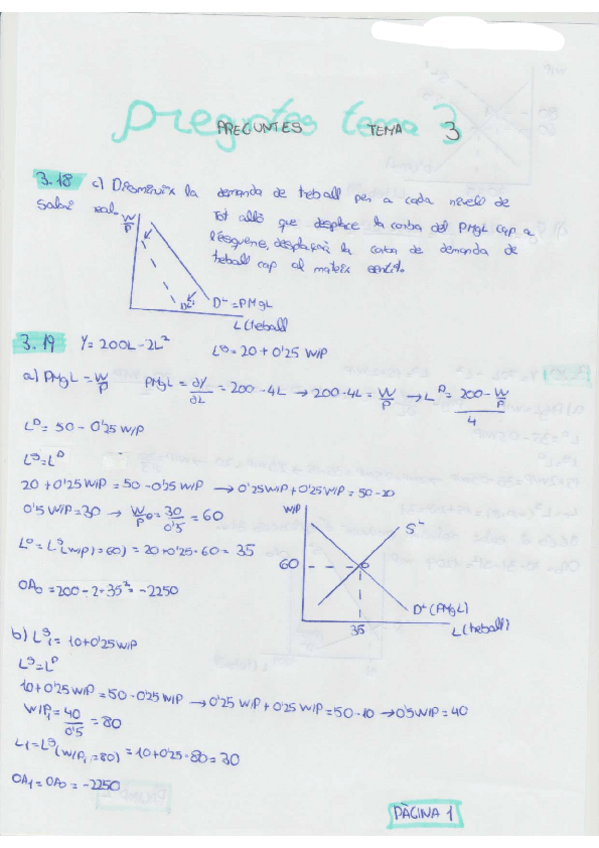 preguntes tema 3
PREGUNTES TEMA
3.18 c) Disminuix la demanda de treball per a cada nivell de
salari real.
Tot allò que desplace la corba del PMgL cap a
l'esquerra, desplaçarà la corba de demanda de
treball cap al mateix sentit.
W/P
DL'
DL=PMgL
L(treball
3.19 Y=200L-2L² Lˢ=20+0'25 W/P
a) PMgL=W/P PMgL=∂Y/∂L=200-4L → 200-4L=W/P → Lᴰ=200-W/P/4
Lᴰ=50-0'25W/P
Lˢ=Lᴰ
20+0'25W/P=50-0'25W/P → 0'25W/P+0'25W/P=50-20
0'5W/P=30 → W/P⁰=30/0'5=60
L⁰=Lˢ(W/P)=60)=20+0'25·60=35
OA₀=200-2·35²=-2250
W/P
Sᴸ
60
35
Dᴸ(PMgL)
L(treball)
b) Lˢ₁=10+0'25W/P
Lˢ=Lᴰ
10+0'25W/P=50-0'25W/P → 0'25W/P+0'25W/P=50-10 → 0'5W/P=40
W/P₁=40/0'5=80
L₁=Lˢ(W/P₁=80)=10+0'25·80=30
OA₁=OA₀=-2250
PÀGINA 1